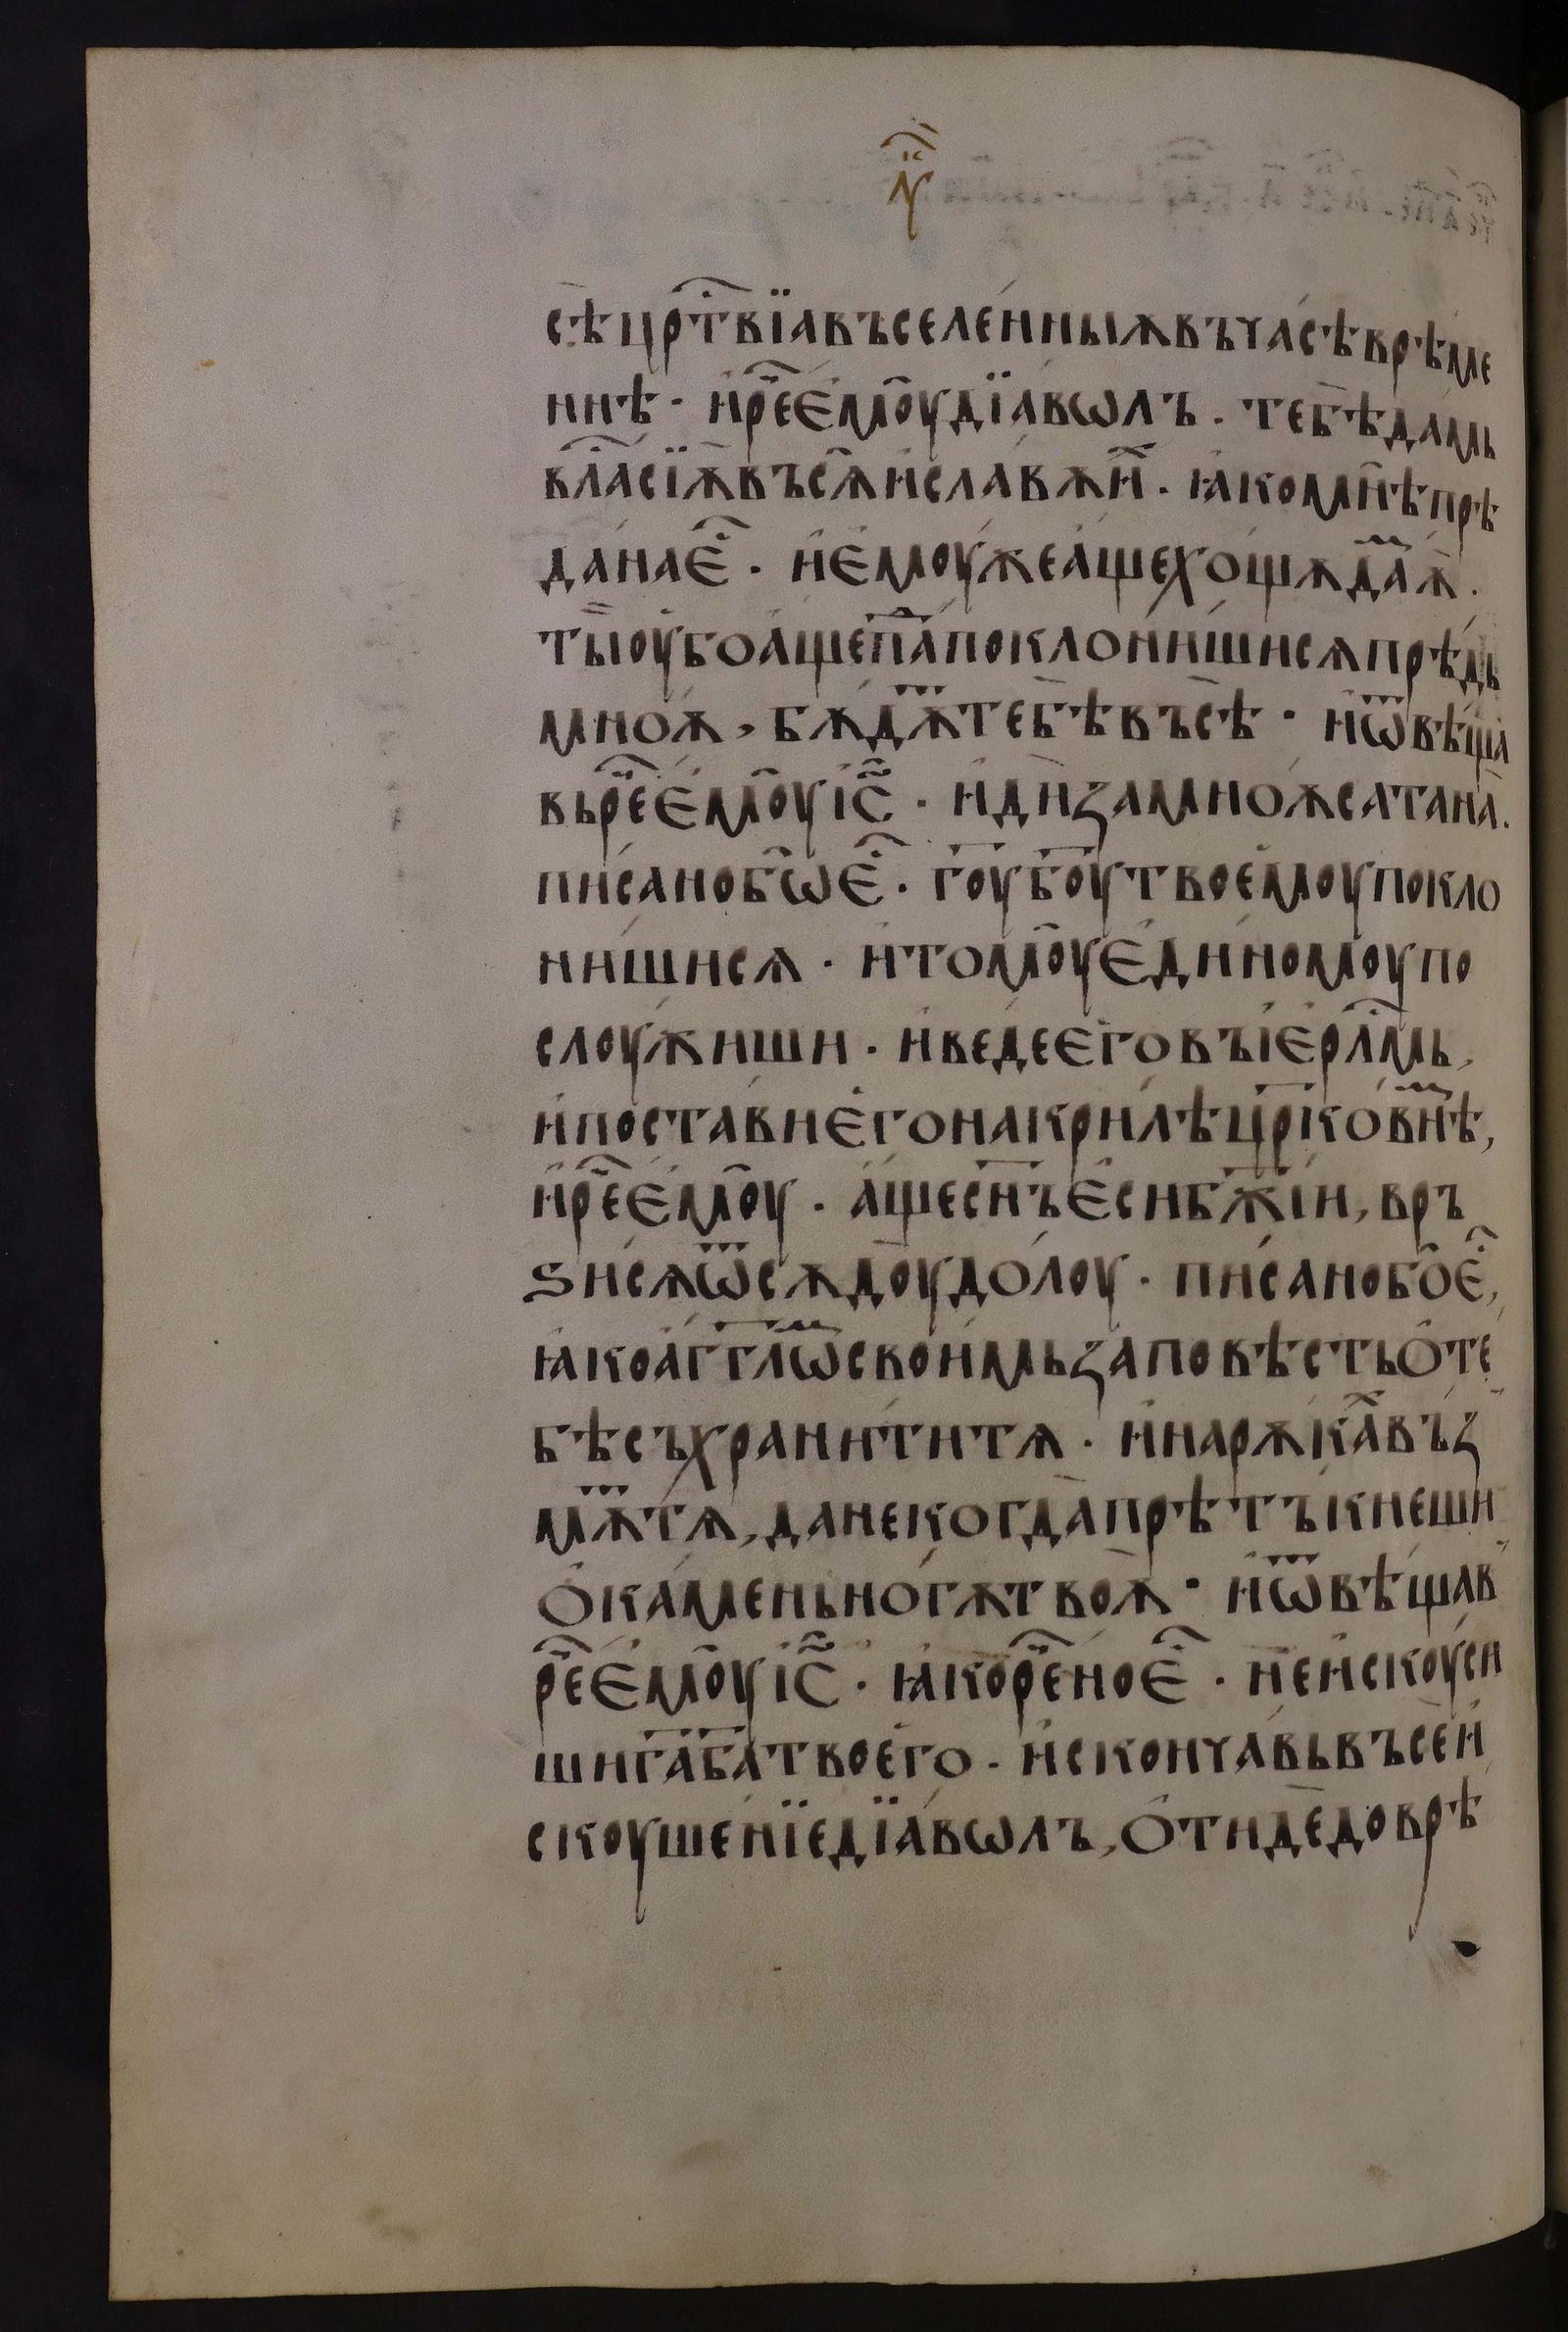 л꙼к
сѣ црⷭ҇твїа въселе́нныѧ въ ча́сѣ врѣме
ннѣ · и҆ рⷱ҇е є҆мꙋ̑ дїа́вѡлъ · тебѣ̀ да́мь
вла́сїѫ въсѧ̀ и҆ сла́вѫ иⷯ · ꙗ҆́ко мнѣ̀ прѣ
да́на єⷭ҇ · и҆ є҆моу́же а҆́ще хощѫ̀ да́мⷨ ѧ̀ ·
ты̀ оу҆̀бо а҆́ще па́ⷣ поклони́шисѧ прѣ́дь
мно́ѫ, бѫ́дѫⷮ тебѣ̀ въсѣ̀ · и҆ ѿвѣ́ща
вь рⷱ҇е є҆мꙋ̑ і҆с҃ · и҆дѝ за мно́ѫ сатана̀ ·
пи́сано бѡ̑ єⷭ҇ · гоу҃ боу҃ твоє҆моу̀ покло
ни́шисѧ · и҆ томоу̑ є҆ди́номоу по
слоу́жиши · и҆ ве́де є҆го̀ въ і҆єр҆ли́мь,
и҆ поста́ви є҆го̀ на крилѣ̀ цр҃ко́внⷨѣ,
и҆ рⷱ҇е є҆мо̑у · а҆́ще сн҃ъ є҆сѝ бж҃їи, връ
ѕи́сѧ ѿсѫ́дꙋ до́лоу · пи́сано бо̑ єⷭ҇,
ꙗ҆́ко а҆́гг҃лѡⷨ свои́мь заповѣ́сть ѻ҆ те
бѣ̀ съхрани́ти тѧ · и҆ на рѫка́ⷯ въз
мѫⷮ тѧ̀, да не когда̀ прѣтъ́кнеши
ѻ҆ ка́мень но́гѫ твоѫ̀ · и҆ ѿвѣ́щав
рⷱ҇е є҆мо̑у і҆с҃ · ꙗ҆́ко рⷱ҇ено єⷭ҇ · не и҆скоу́си
ши га҃ ба҃ твоє҆го̀ · и҆ сконча́вь въсѐ и҆
скоуше́нїе дїа́вѡлъ, ѻ҆ти́де до врѣ